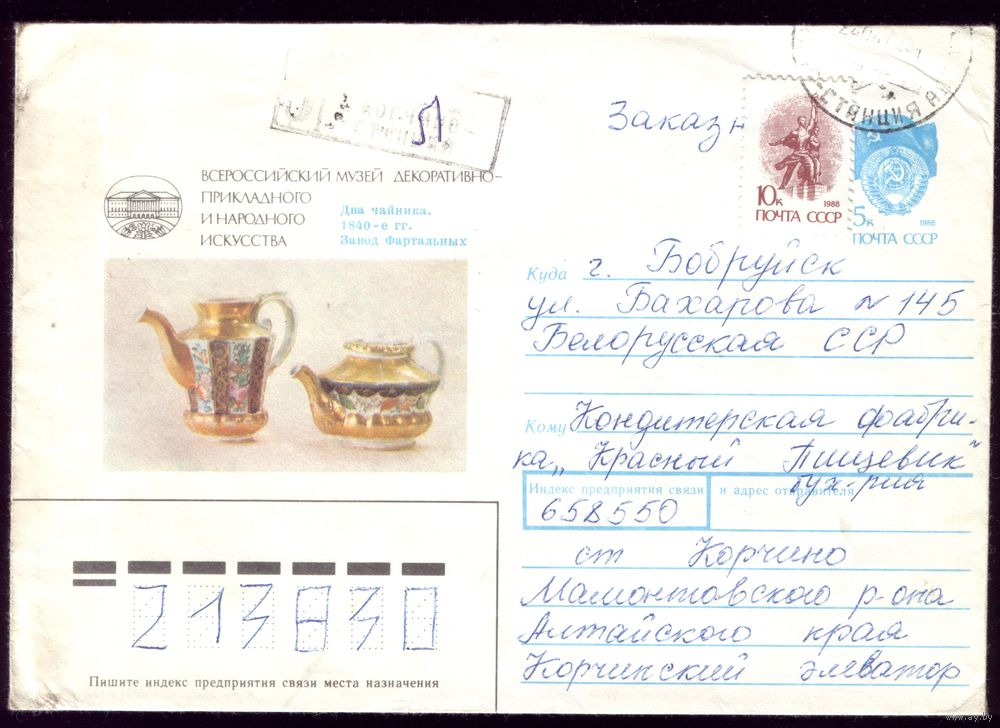 Заказн
ВСЕРОССИЙСКИЙ МУЗЕЙ ДЕКОРАТИВНО-
ПРИКЛАДНОГО
И НАРОДНОГО
ИСКУССТВА
Два чайника.
1840-е гг.
Завод Фартальных
СТАНЦИЯ
10к
1988
ПОЧТА СССР
5к
1988
ПОЧТА СССР
Куда г. Бобруйск
ул. Бахарова № 145
Белорусская ССР
Кому Кондитерская фабри-
ка „Красный Пищевик"
бух-рия
Индекс предприятия связи и адрес отправителя
658550
ст Корчино
Мамонтовского р-она
Алтайского края
Корчинский элеватор
213830
Пишите индекс предприятия связи места назначения
www.ay.by